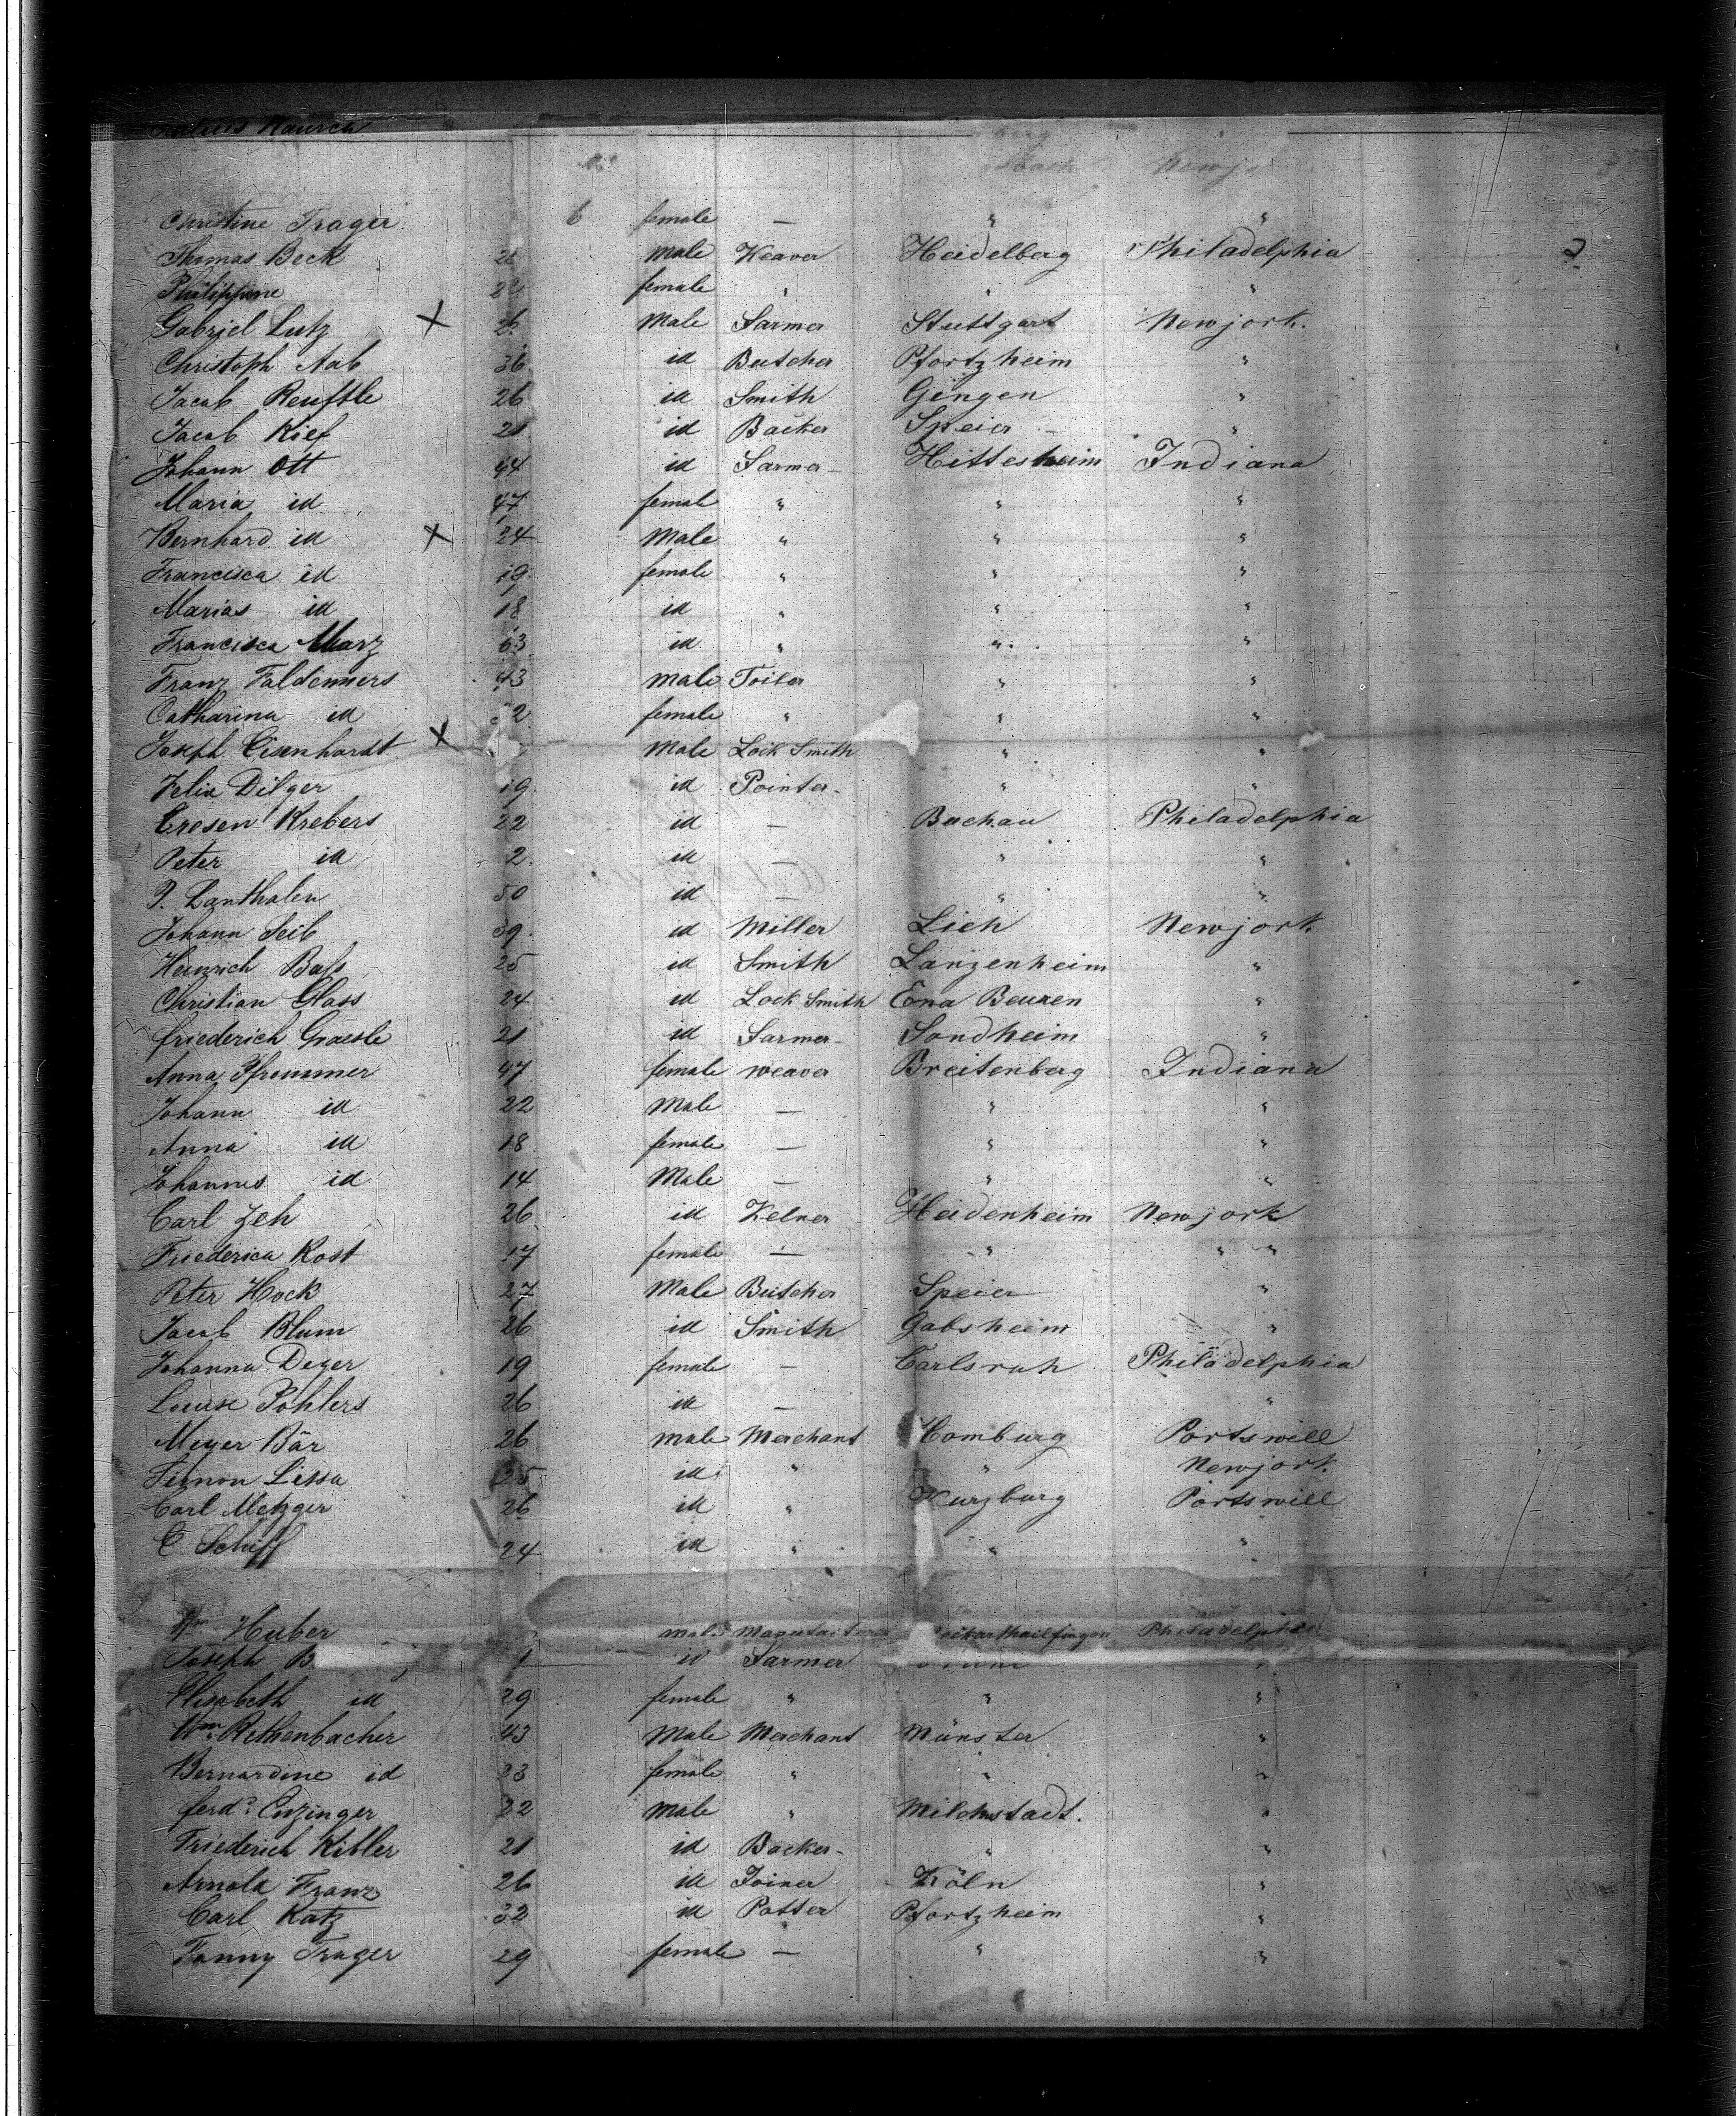 Newj
Christine Trager 6 female — " "
Thomas Beck male Weaver Heidelberg Philadelphia
Philippine 22 female " " "
Gabriel Lutz X male Farmer Stuttgart Newjork.
Christoph Aab 36 id Butcher Pfortzheim "
Jacob Reuftle 26 id Smith Gingen "
Jacob Kief 21 id Backer Speier "
Johann Ott 44 id Farmer Hittesheim Indiana
Maria id 47 female " " "
Bernhard id X 24 Male " " "
Francisca id 19 female " " "
Marias id 18 id " " "
Francisca Marz 63 id " " "
Franz Faldenners 43 male " "
Catharina id 2 female " " "
Joseph Eisenhardt X Male Lock Smith " "
Felix Dilger 19 id Pointer " "
Cresen Krebers 22 id — Buchau Philadelphia
Peter id 2 id — " "
P. Lanthalen 50 id — " "
Johann Seib 39 id Miller Lich Newjork
Heinrich Bals 25 id Smith Lanzenheim "
Christian Glass 24 id Lock Smith Beuren "
friederich Graesle 21 id Farmer Sondheim "
Anna Pfrummer 47 female weaver Breitenberg Indiana
Johann id 22 Male — " "
Anna id 18 female — " "
Johannes id 14 Male — " "
Carl Zeh 26 id Kelner Heidenheim Newjork
Friederica Rost 17 female — " " "
Peter Hock 27 Male Butcher Speier "
Jacob Blum 26 id Smith Gabsheim "
Johanna Deger 19 female — Carlsruh Philadelphia
Louise Pohlers 26 id — "
Meyer Bär 26 male Merchant Homburg Portswill
Lissa 25 id " " Newjork
Carl Metzger 26 id " Wurzburg Portswill
C. Schiff 24 id " " "
Wm Huber male Philadelphia
Joseph B id Farmer
Elisabeth id 29 female " " "
Wm Rethenbacher 43 Male Merchant Münster "
Bernardine id 23 female " " "
ferdd Enzinger 22 Male " Milchstadt. "
Friederich Kibler 21 id Backer " "
Arnold Franz 26 id Joiner Köln "
Carl Katz 32 id Potter Pfortzheim "
Fanny Trager 29 female — " "